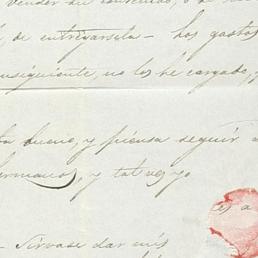 vender su contenido, o de
de entregarsela – los gastos
onsiguiente, no los he cargado,
ta bueno, y piensa seguir a
hermanos, y tal vez yo
– Sirvase dar mis